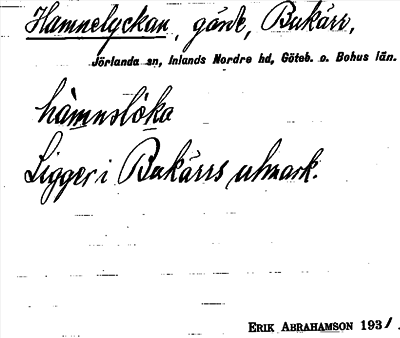 Hamnelyckan, gärde, Bukärr,
Jörlanda sn, Inlands Nordre hd, Göteb. o. Bohus län.
hàmnslöka
Ligger i Bukärrs utmark.
ERIK ABRAHAMSON 193/.